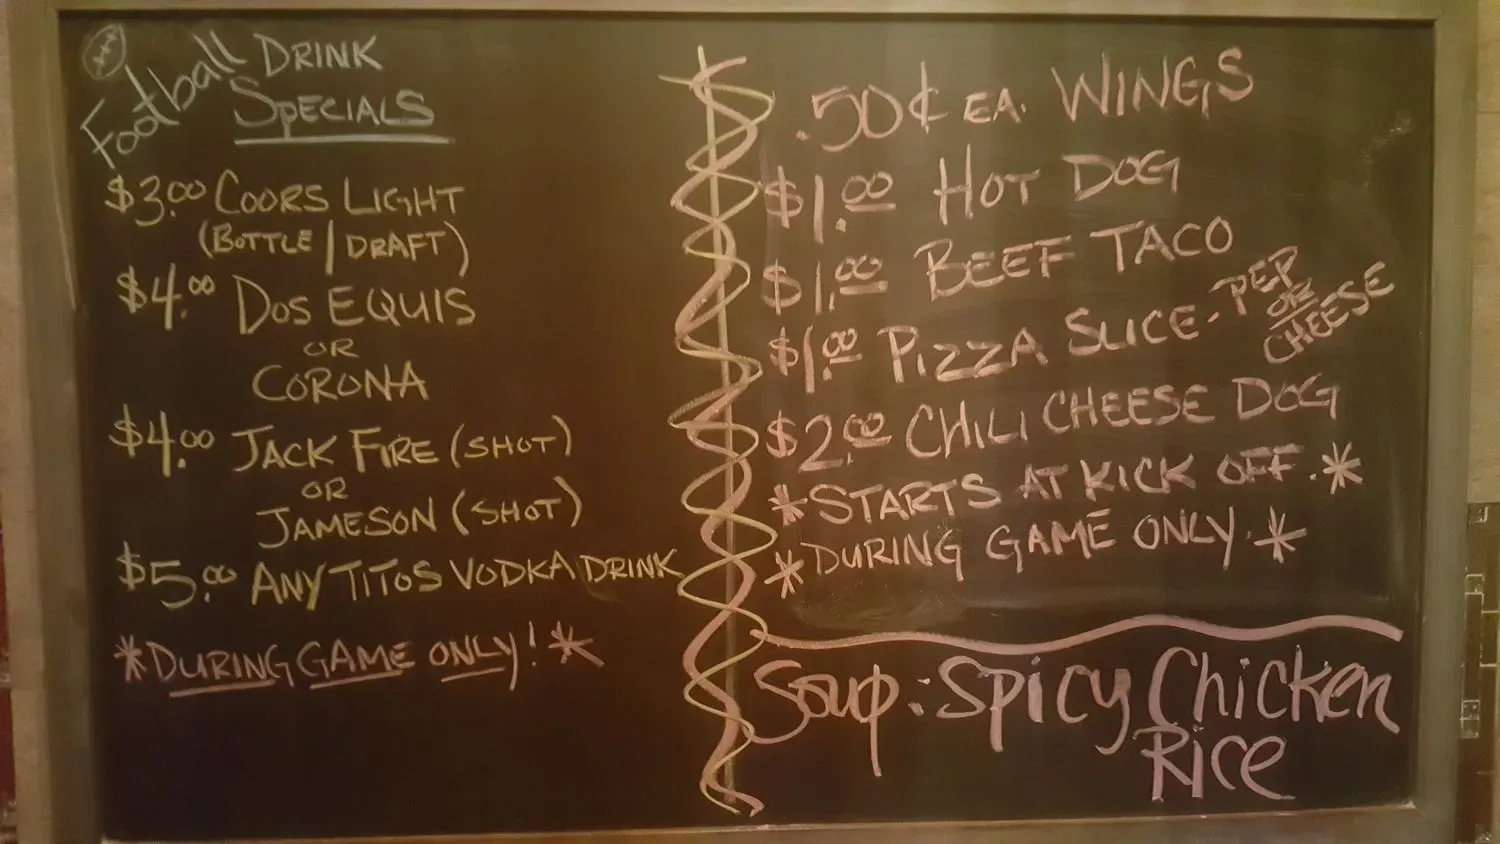 Football DRINK
SPECIALS
$3.00 COORS LIGHT
(BOTTLE/DRAFT)
$4.00 DOS EQUIS
OR
CORONA
$4.00 JACK FIRE (SHOT)
OR
JAMESON (SHOT)
$5.00 ANY TITOS VODKA DRINK
*DURING GAME ONLY! *
.50¢ EA. WINGS
$1.00 HOT DOG
$1.00 BEEF TACO
$1.00 PIZZA SLICE - PEP
OR
CHEESE
$2.00 CHILI CHEESE DOG
*STARTS AT KICK OFF.*
*DURING GAME ONLY.*
Soup: Spicy Chicken
Rice